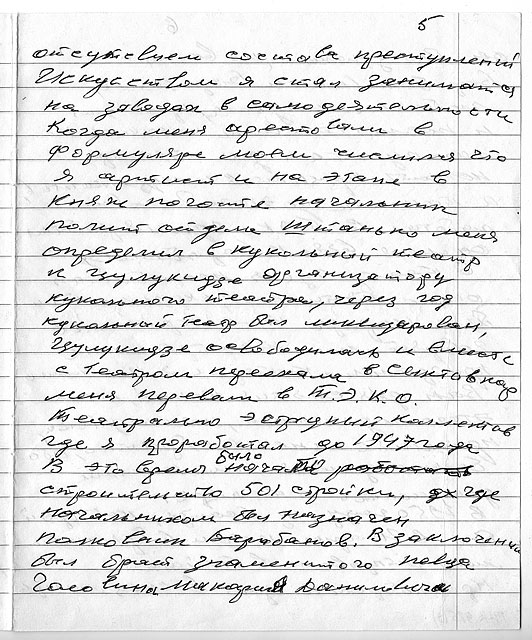 5
отсутсвием состава преступлений
Искусством я стал заниматся
на заводах в самодеятельности
Когда меня арестовали в
формуляре моем числился что
я артист и на этапе в
Княж погосте начальник
полит отдела Штанько меня
определил в кукольный театр
к Цулукидзе организатору
кукольного театра, через год
кукольный театр был ликвидирован,
Цулукидзе освободилась и вместе
с театром переехала в Сыктывкар
меня перевели в Т.Э.К.О.
Театрально эстрадный коллектив
где я проработал до 1947 года
В это время было начато
строительство 501 стройки, где
начальником был назначен
полковник Барабанов. В заключении
был брат знаменитого певца
Головина Макария Даниловича